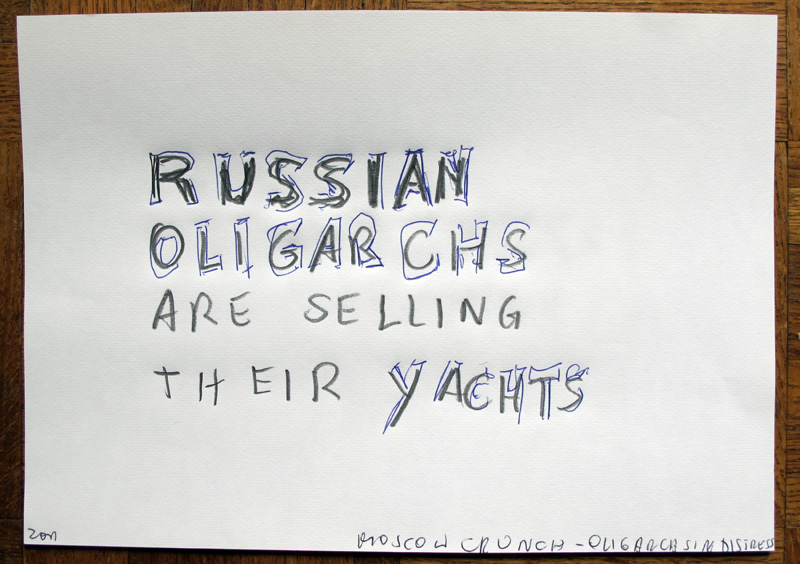 RUSSIAN
OLIGARCHS
ARE SELLING
THEIR YACHTS
MOSCOW CRUNCH - OLIGARCHS IN DISTRESS